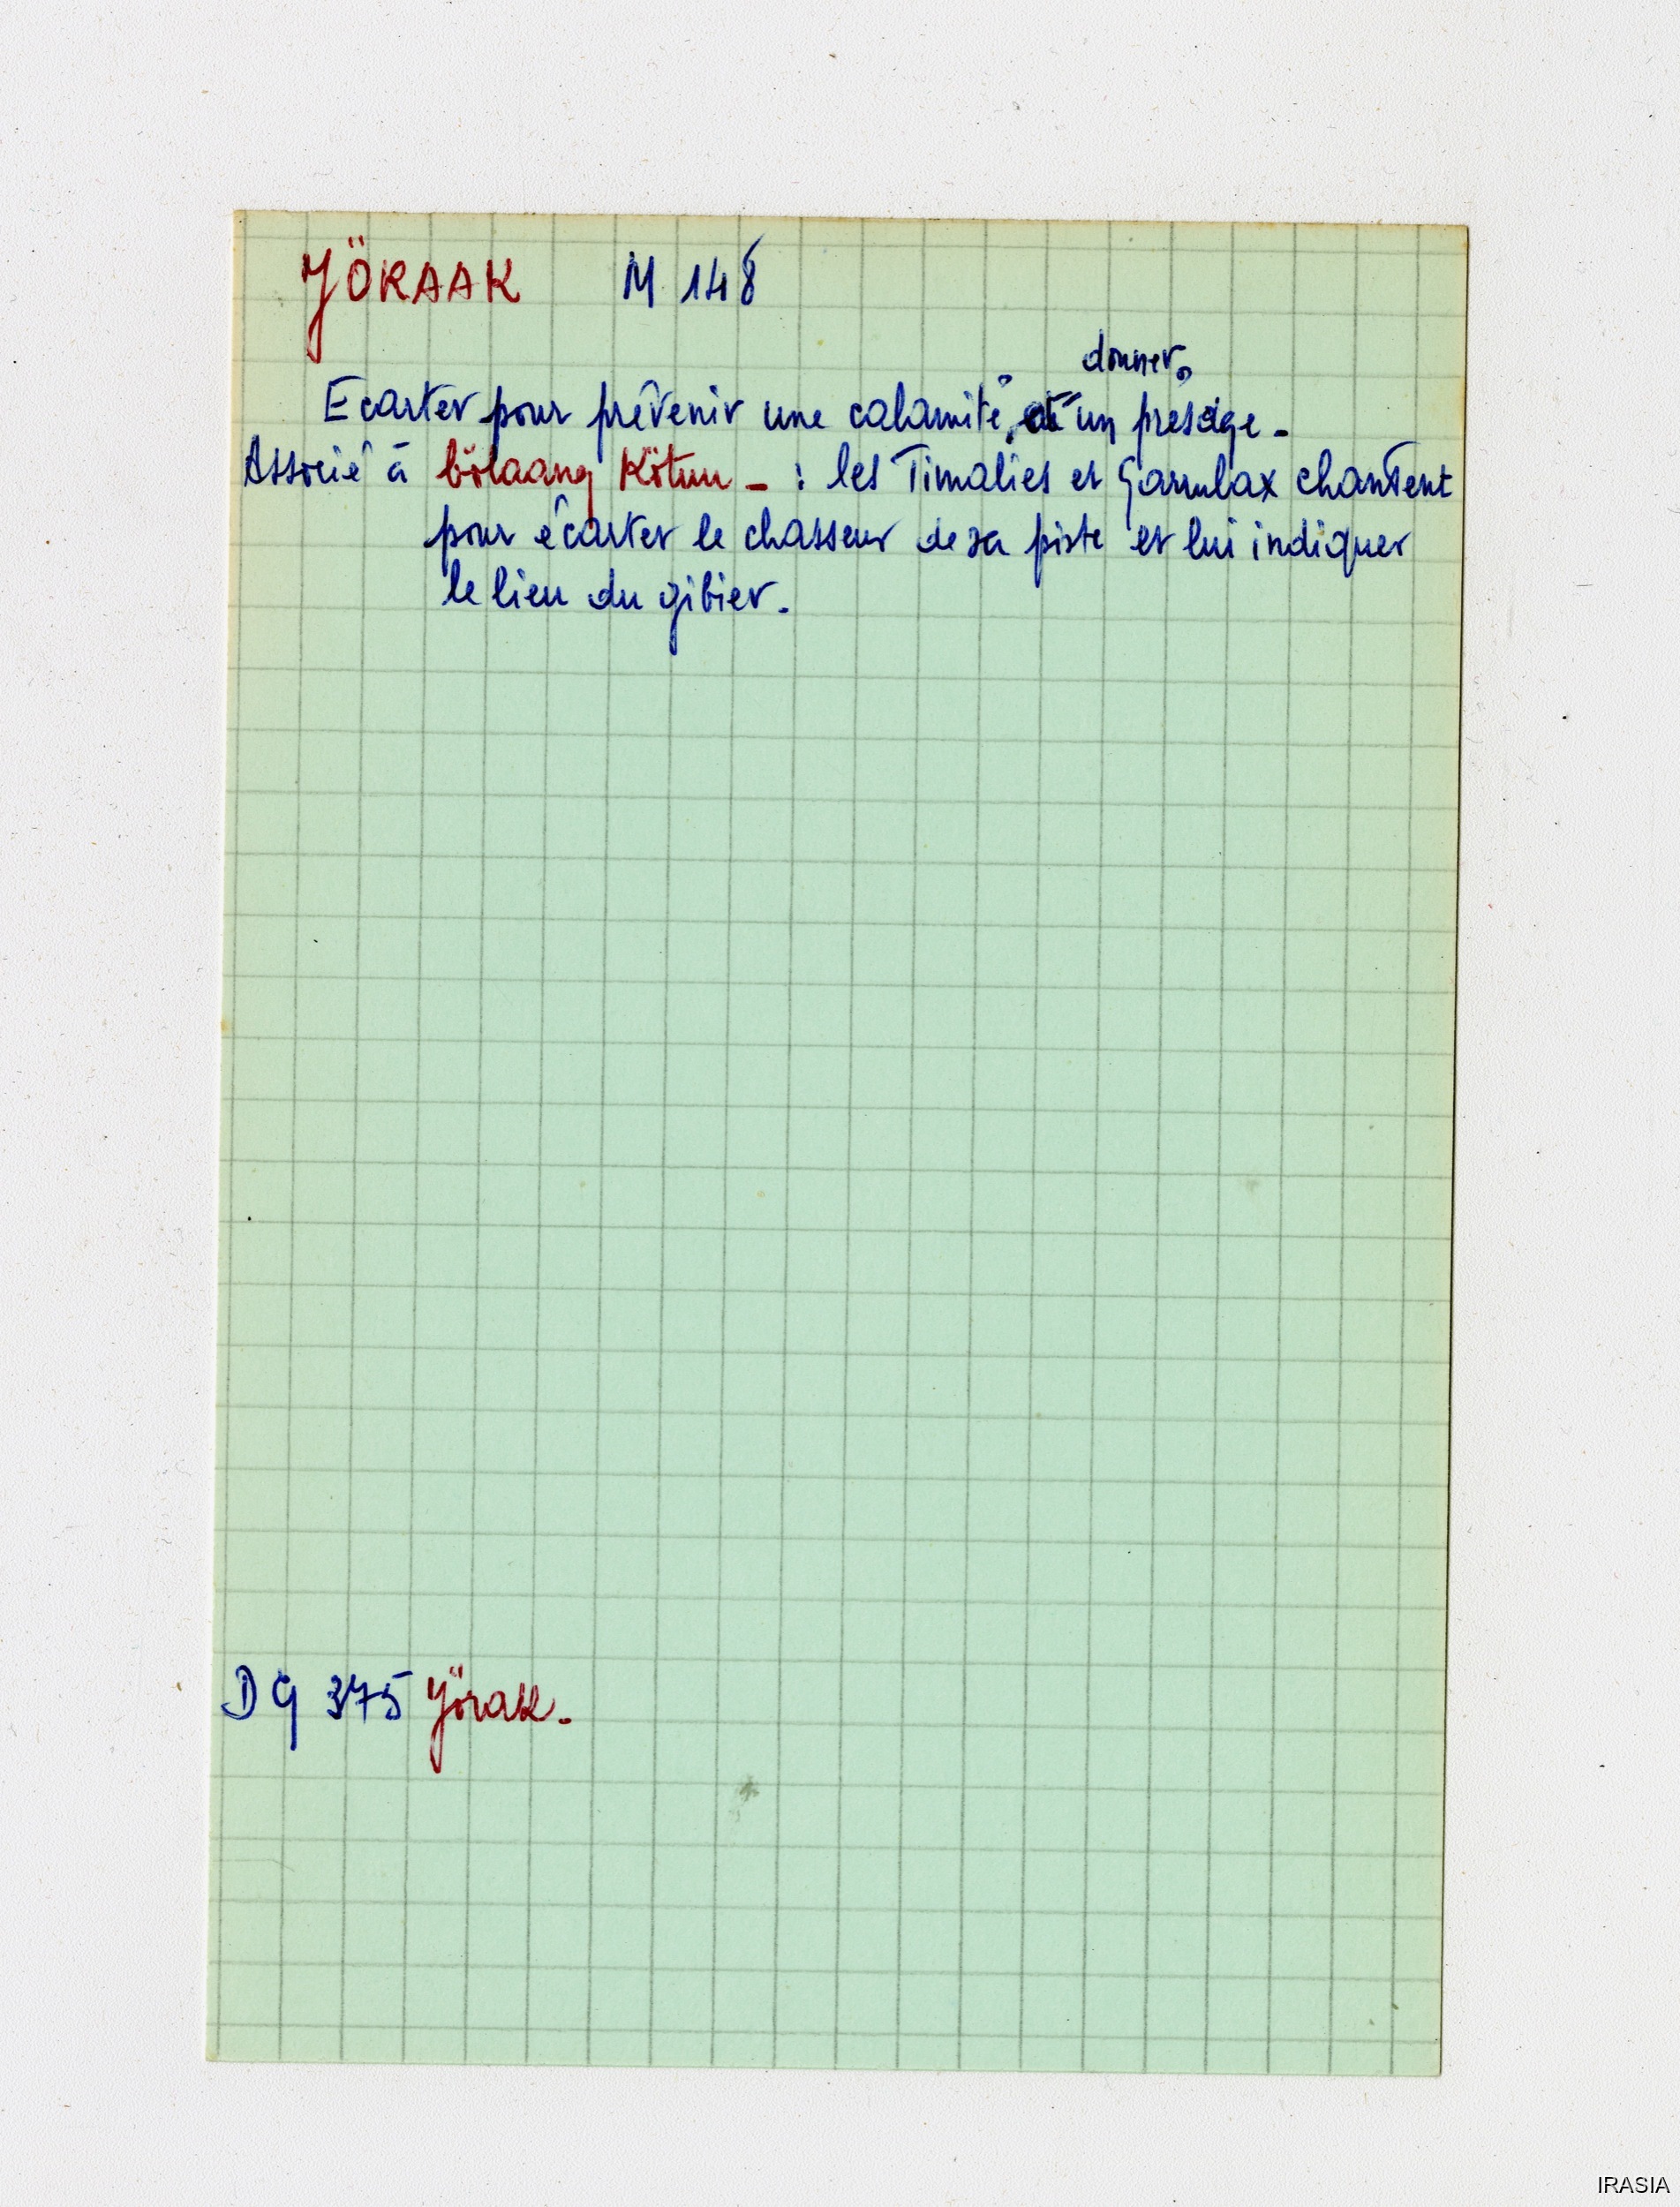 YÖRAAK M 148
donner
Ecarter pour prévenir une calamité, et un presage.
Associé à bölaang Kötum - : les Timalies et Garrulax chantent
pour écarter le chasseur de sa piste et lui indiquer
le lieu du gibier.
DG 375 yörak.
IRASIA